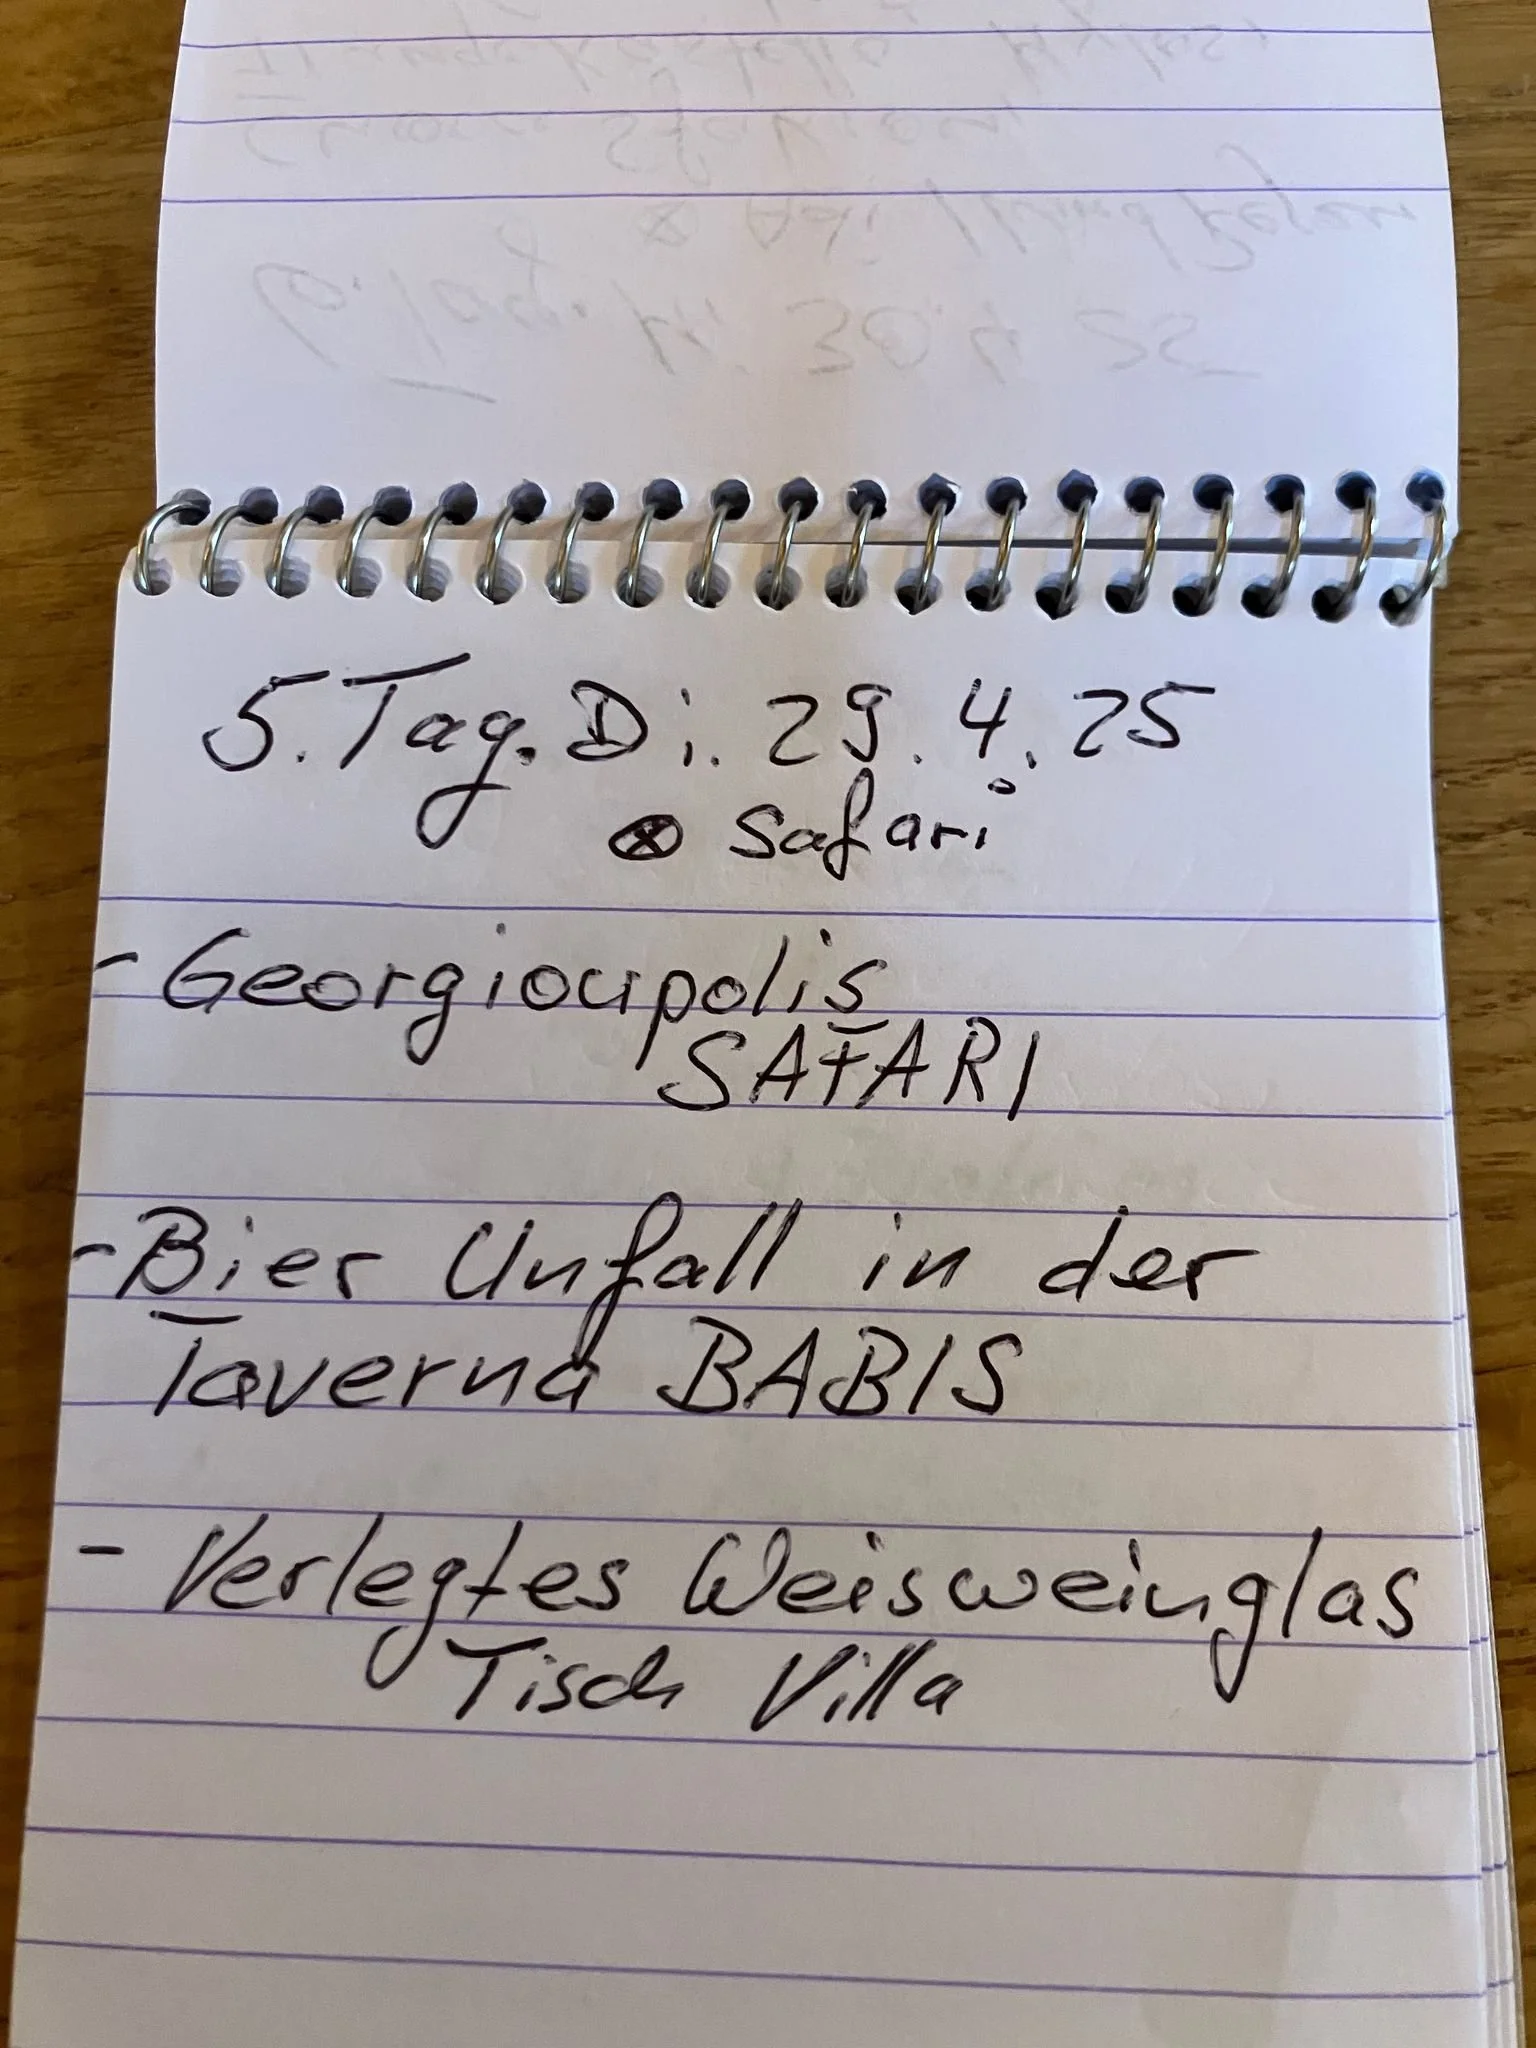 5. Tag. Di. 29.4.25
⊗ Safari
- Georgioupolis
SAFARI
- Bier Unfall in der
Taverna BABIS
- Verlegtes Weisweinglas
Tisch Villa